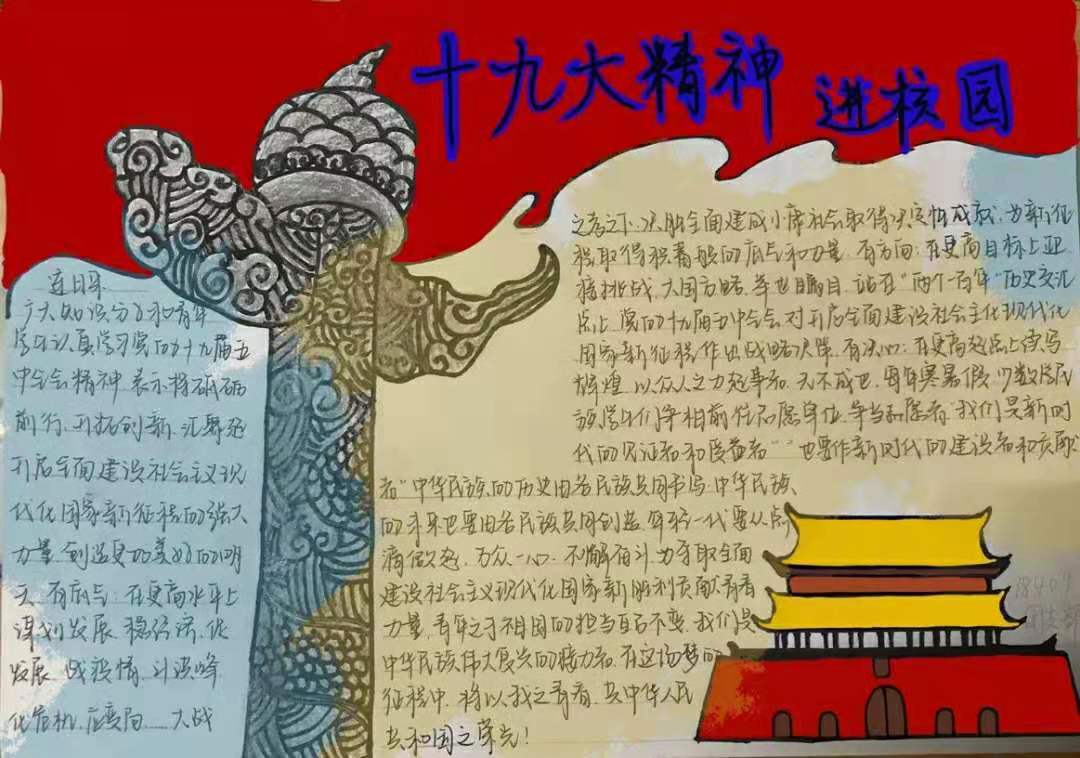 十九大精神 进校园
连日来
广大知识分子和青年
学生认真学习党的十九届五
中全会精神.表示将砥砺
前行.开拓创新.汇聚起
开启全面建设社会主义现
代化国家新征程的强大
力量.创造更加美好的明
天.有底气:在更高水平上
谋划发展.稳经济.促
发展.战疫情.斗洪峰
化危机.应变局……大战
之考之下.决胜全面建成小康社会取得决定性成就.为新征
程取得积蓄般的底气和力量.有方向:在更高目标上迎
接挑战.大国方略.举世瞩目.站在"两个一百年"历史交汇
点上.党的十九届五中全会对开启全面建设社会主化现代化
国家新征程作出战略决策.有决心:在更高起点上续写
辉煌.以众人之力起事者.无不成也.每年寒暑假.少数学民
族学生们争相前往志愿单位.争当志愿者."我们是新时
代的见证者和受益者""也要作新时代的建设者和贡献
者"中华民族的历史由各民族共同书写.中华民族
的未来也要由各民族共同创造.年轻一代要从点
滴做起.万众一心.不懈奋斗.为夺取全面
建设社会主义现代化国家新胜利贡献青春
力量.青年之于祖国的担当自古不变.我们是
中华民族伟大复兴的接力者.在这场梦的
征程中.将以我之青春.共中华人民
共和国之荣光!